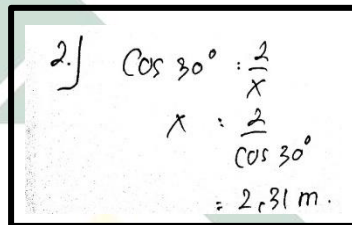 2.) Cos 30° : 2/x
x : 2/cos 30°
= 2,31 m.